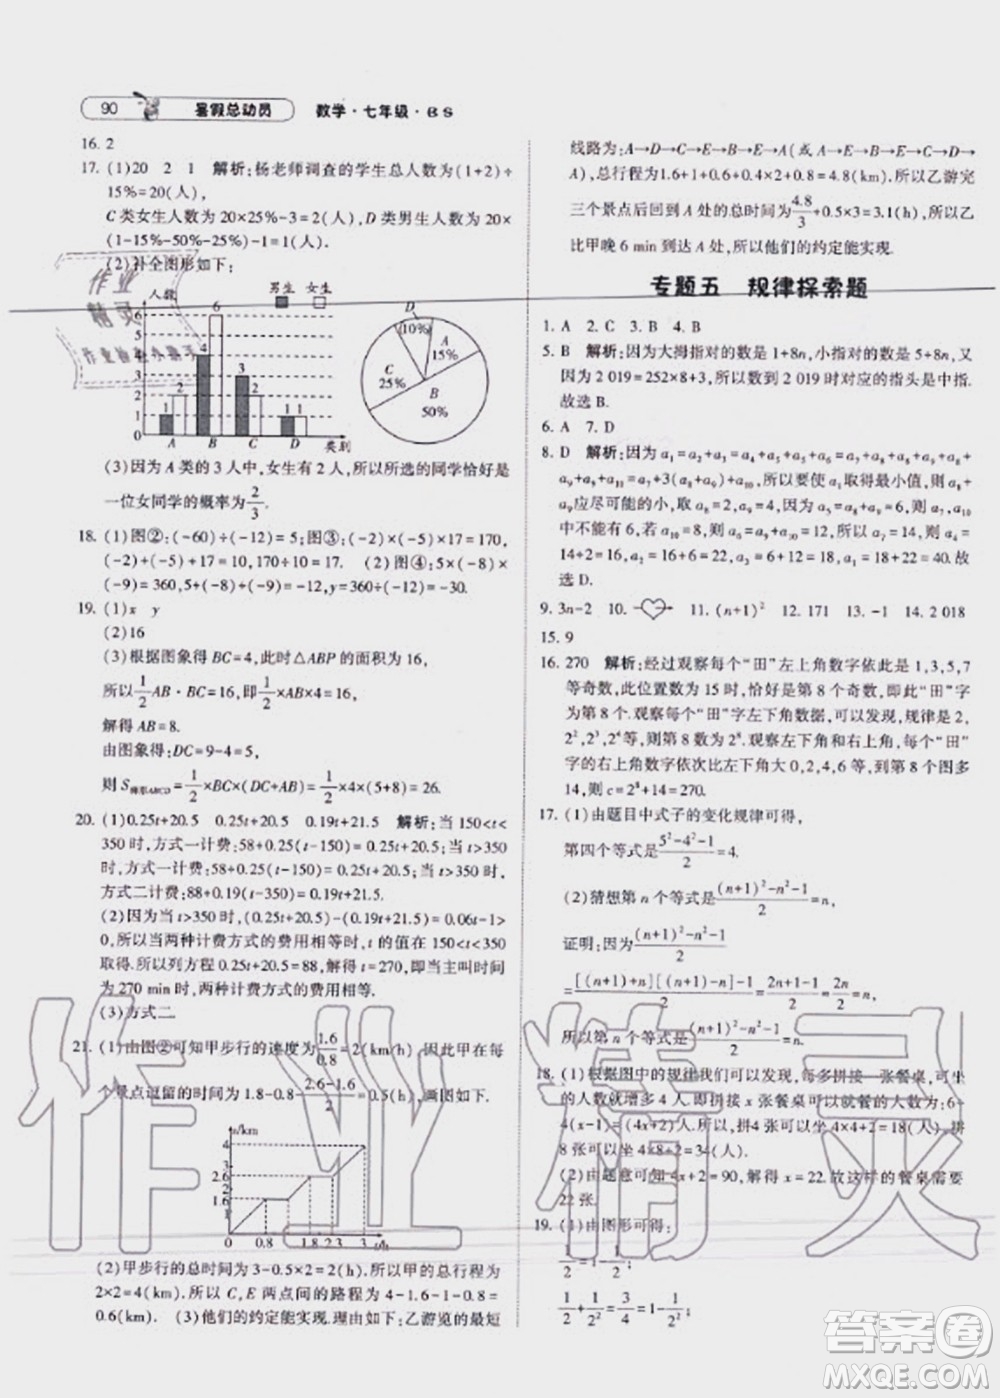 90 暑假总动员 数学·七年级·BS
16. 2
17. (1)20 2 1 解析:杨老师调查的学生总人数为(1+2)÷
15%=20(人),
C 类女生人数为 20×25%-3=2(人),D 类男生人数为 20×
(1-15%-50%-25%)-1=1(人).
(2)补全图形如下:
人数 男生 女生
6
5
4
3
2
1
1 2 4 6 3 2 1 1
A B C D 类别
D (10%)
A 15%
C 25%
B 50%
(3)因为 A 类的 3 人中,女生有 2 人,所以所选的同学恰好是
一位女同学的概率为2/3.
18. (1)图②:(-60)÷(-12)=5;图③:(-2)×(-5)×17=170,
(-2)+(-5)+17=10,170÷10=17. (2)图④:5×(-8)×
(-9)=360,5+(-8)+(-9)=-12,y=360÷(-12)=-30.
19. (1)x y
(2)16
(3)根据图象得 BC=4,此时△ABP 的面积为 16,
所以1/2AB·BC=16,即1/2×AB×4=16,
解得 AB=8.
由图象得:DC=9-4=5,
则 S梯形ABCD=1/2×BC×(DC+AB)=1/2×4×(5+8)=26.
20. (1)0.25t+20.5 0.25t+20.5 0.19t+21.5 解析:当 150<t<
350 时,方式一计费:58+0.25(t-150)=0.25t+20.5;
当 t>350 时,方式一计费:58+0.25(t-150)=0.25t+20.5;
方式二计费:88+0.19(t-350)=0.19t+21.5.
(2)因为当 t>350 时,(0.25t+20.5)-(0.19t+21.5)=0.06t-1>
0,所以当两种计费方式的费用相等时,t 的值在 150<t<350
取得.所以列方程 0.25t+20.5=88,解得 t=270.即当主叫时间
为 270 min 时,两种方式的费用相等.
(3)方式二
21. (1)由图②可知甲步行的速度为1.6/0.8=2(km/h),因此甲在每
个景点逗留的时间为 1.8-0.8-(2.6-1.6)/2=0.5(h),画图如下:
s/km
4
3
2.6
2
1.6
1
0 0.8 1.8 2.3 3 t/h
(2)甲步行的总时间为 3-0.5×2=2(h).所以甲的总行程为
2×2=4(km).所以 C,E 两点间的路程为 4-1.6-1-0.8=
0.6(km). (3)他们的约定能实现.理由如下:乙游览的最短
线路为:A→D→C→F→E→B→A(或 A→B→E→F→C→D→
A),总行程为1.6+1+0.6+0.4×2+0.8=4.8(km).所以乙游完
三个景点后回到 A 处的总时间为4.8/3+0.5×3=3.1(h),所以乙
比甲晚 6 min 到达 A 处,所以他们的约定能实现.
专题五 规律探索题
1. A 2. C 3. B 4. B
5. B 解析:因为大拇指对的数是 1+8n,小指对的数是 5+8n,又
因为 2 019=252×8+3,所以数到 2 019 时对应的指头是中指.
故选 B.
6. A 7. D
中不能有 6),
14+2=16,
选 D.
9. 3n-2 11. (n+1)² 12. 171 13. -1 14. 2 018
15. 9
16. 270 解析:经过观察每个“田”左上角数字依此是 1,3,5,7
等奇数,此位置数为 15 时,恰好是第 8 个奇数,即此“田”字
为第 8 个.观察每个“田”字左下角数据,可以发现,规律是 2,
2²,2³,2⁴等,则第 8 数为 2⁸.观察左下角和右上角,每个“田”
字的右上角数字依次比左下角大 0,2,4,6 等,到第 8 个图多
14,则 c=2⁸+14=270.
17. (1)由题目中式子的变化规律可得,
第四个等式是:(5²-4²-1)/2=4.
(2)猜想第 n 个等式是:((n+1)²-n²-1)/2=n,
证明:因为((n+1)²-n²-1)/2
=([(n+1)+n][(n+1)-n]-1)/2=(2n+1-1)/2=2n/2=n,
所以第 n 个等式是:((n+1)²-n²-1)/2=n.
18. (1)根据图中的规律我们可以发现,每多拼接一张餐桌,可坐
的人数就增多 4 人,即拼接 x 张餐桌可以就餐的人数为:6+
4(x-1)=(4x+2)人.所以,拼4 张可坐 4×4+2=18(人),拼
8 张可坐 4×8+2=34(人).
(2)由题意可知 4x+2=90,解得 x=22.故这样的餐桌需要
22 张.
19. (1)由图形可得:
1/2=1-1/2,
1/2+1/4=3/4=1-1/4,
作业精灵
答案圈
MXQE.COM